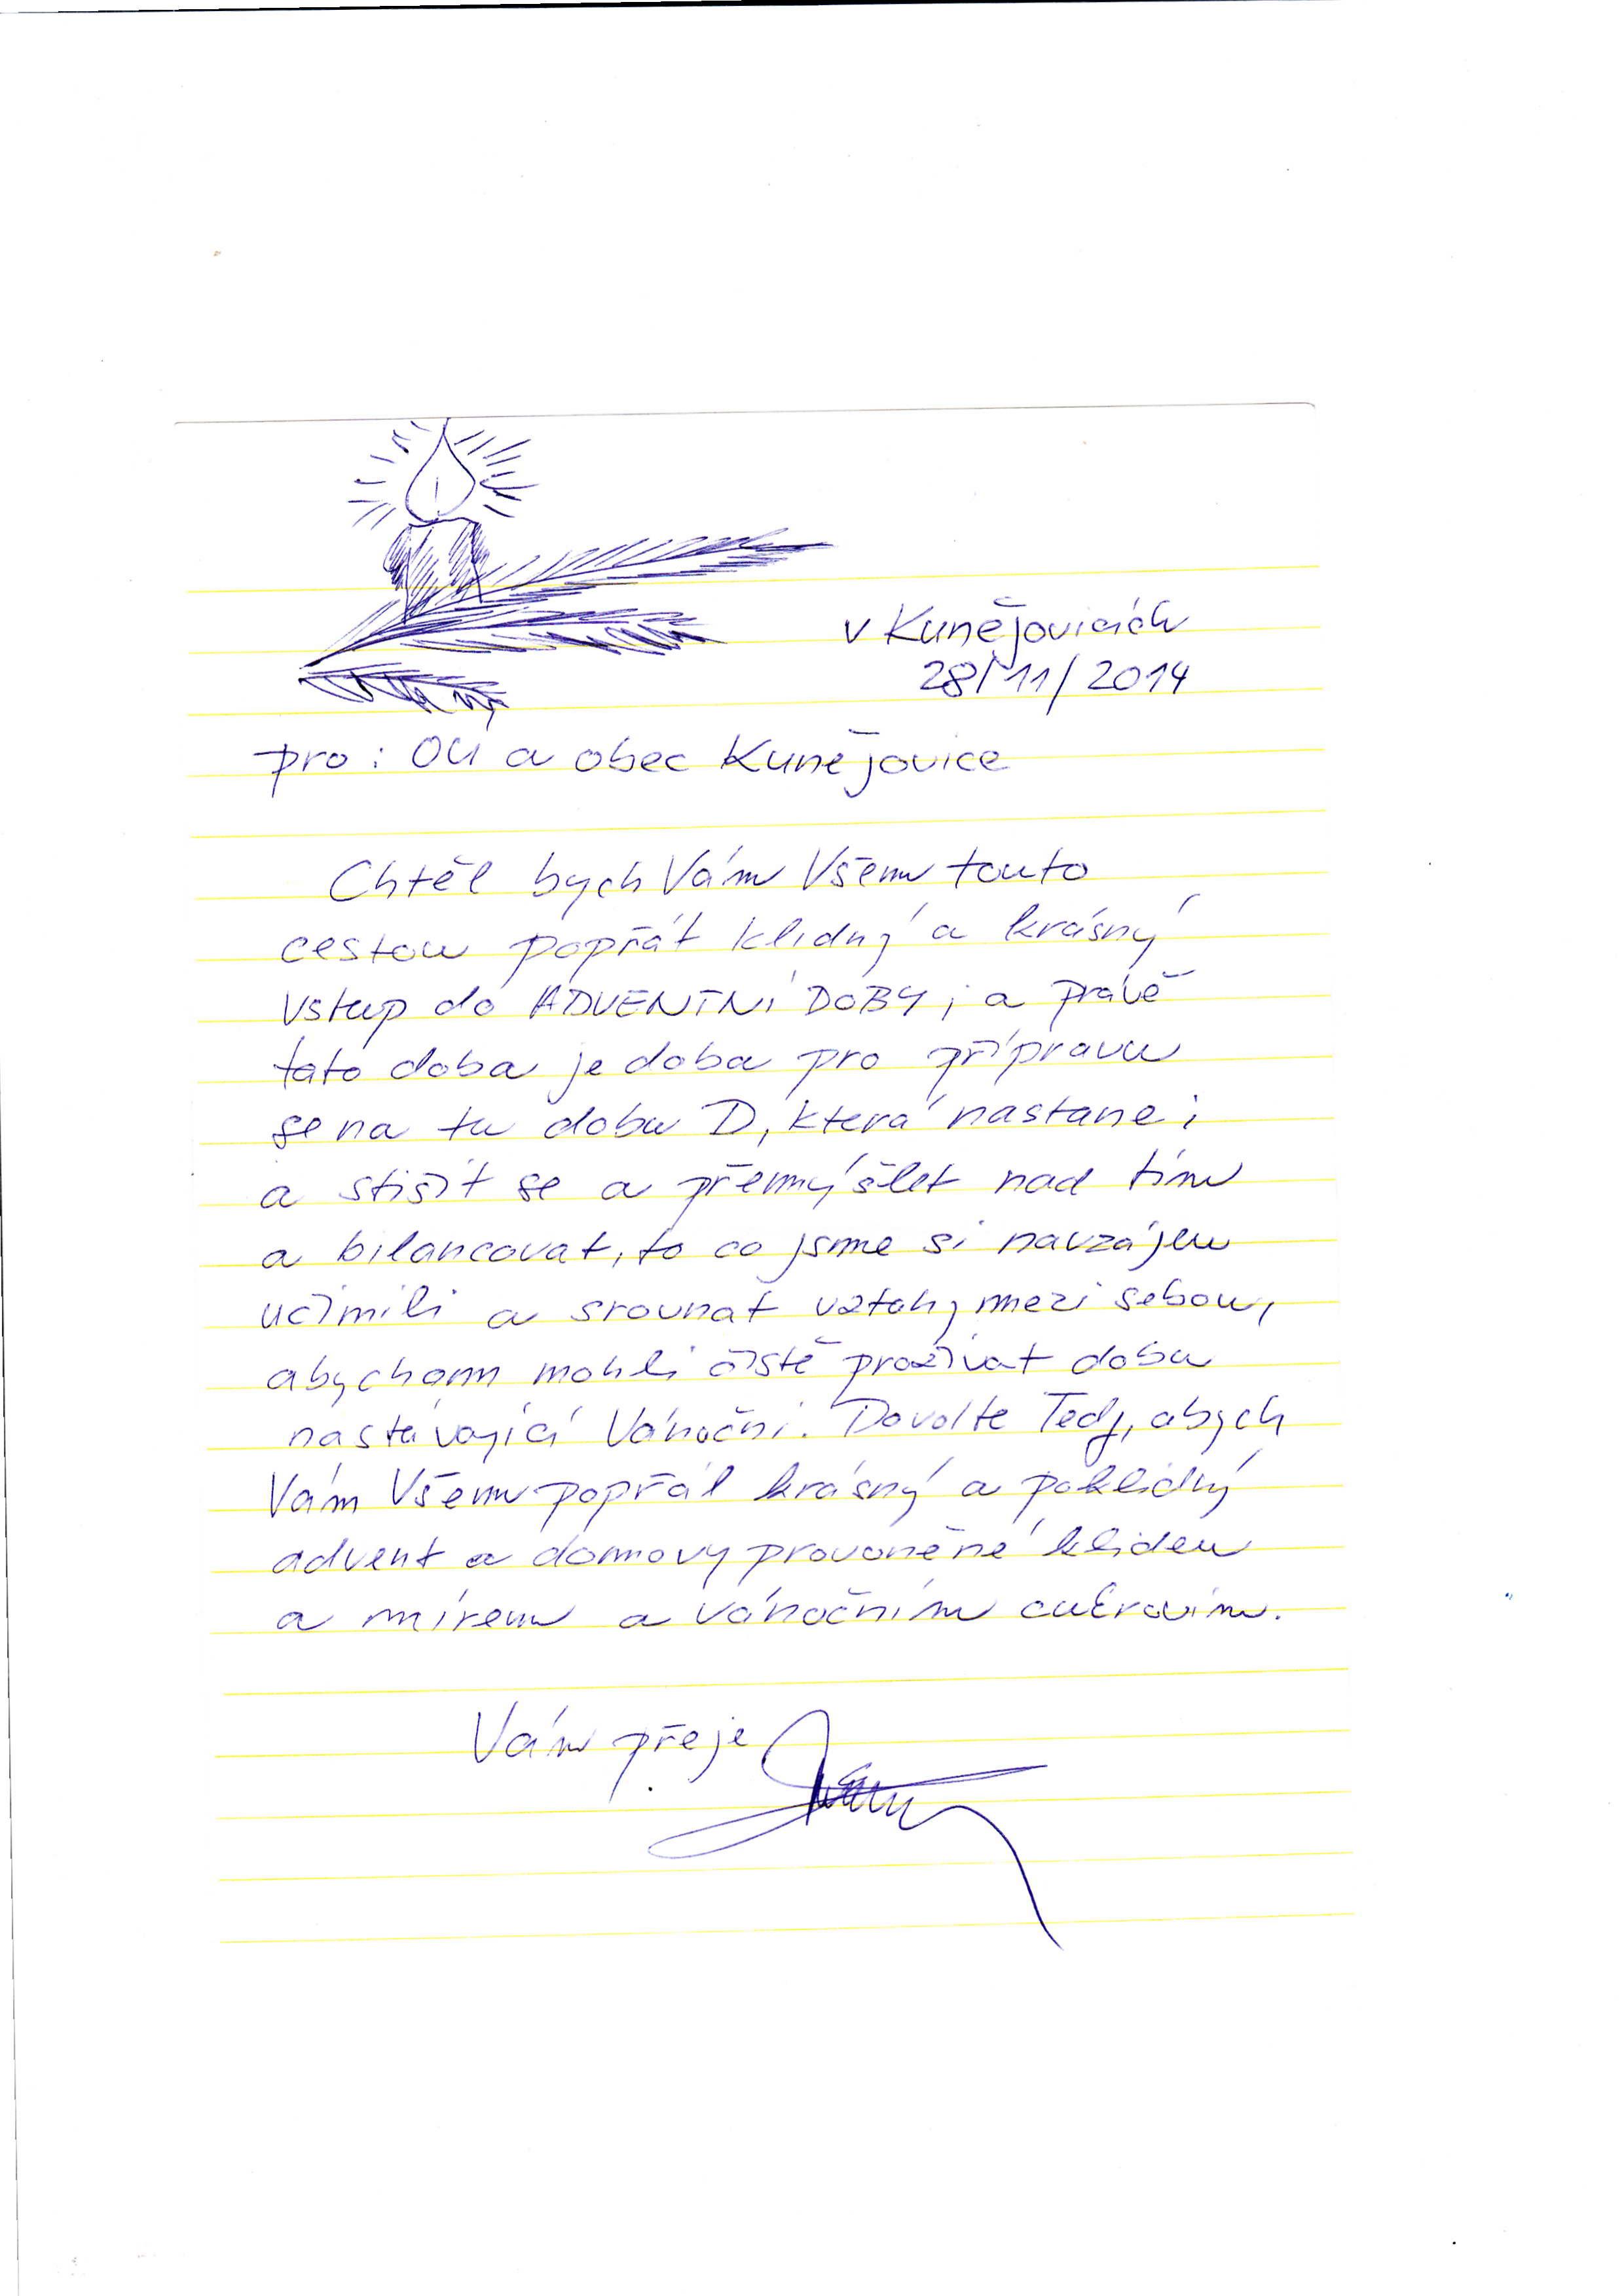 v Kunějovicích
28/11/2014
pro: OÚ a obec Kunějovice
Chtěl bych Vám Všem touto
cestou popřát klidný a krásný
vstup do ADVENTNÍ DOBY; a právě
tato doba je doba pro přípravu
se na tu dobu D, která nastane;
a stišit se a přemýšlet nad tím
a bilancovat, to co jsme si navzájem
učinili a srovnat vztahy mezi sebou,
abychom mohli čistě prožívat dobu
nastávající Vánoční. Dovolte Tedy, abych
Vám Všem popřál krásný a poklidný
advent a domovy provoněné klidem
a mírem a vánočním cukrovím.
Vám přeje